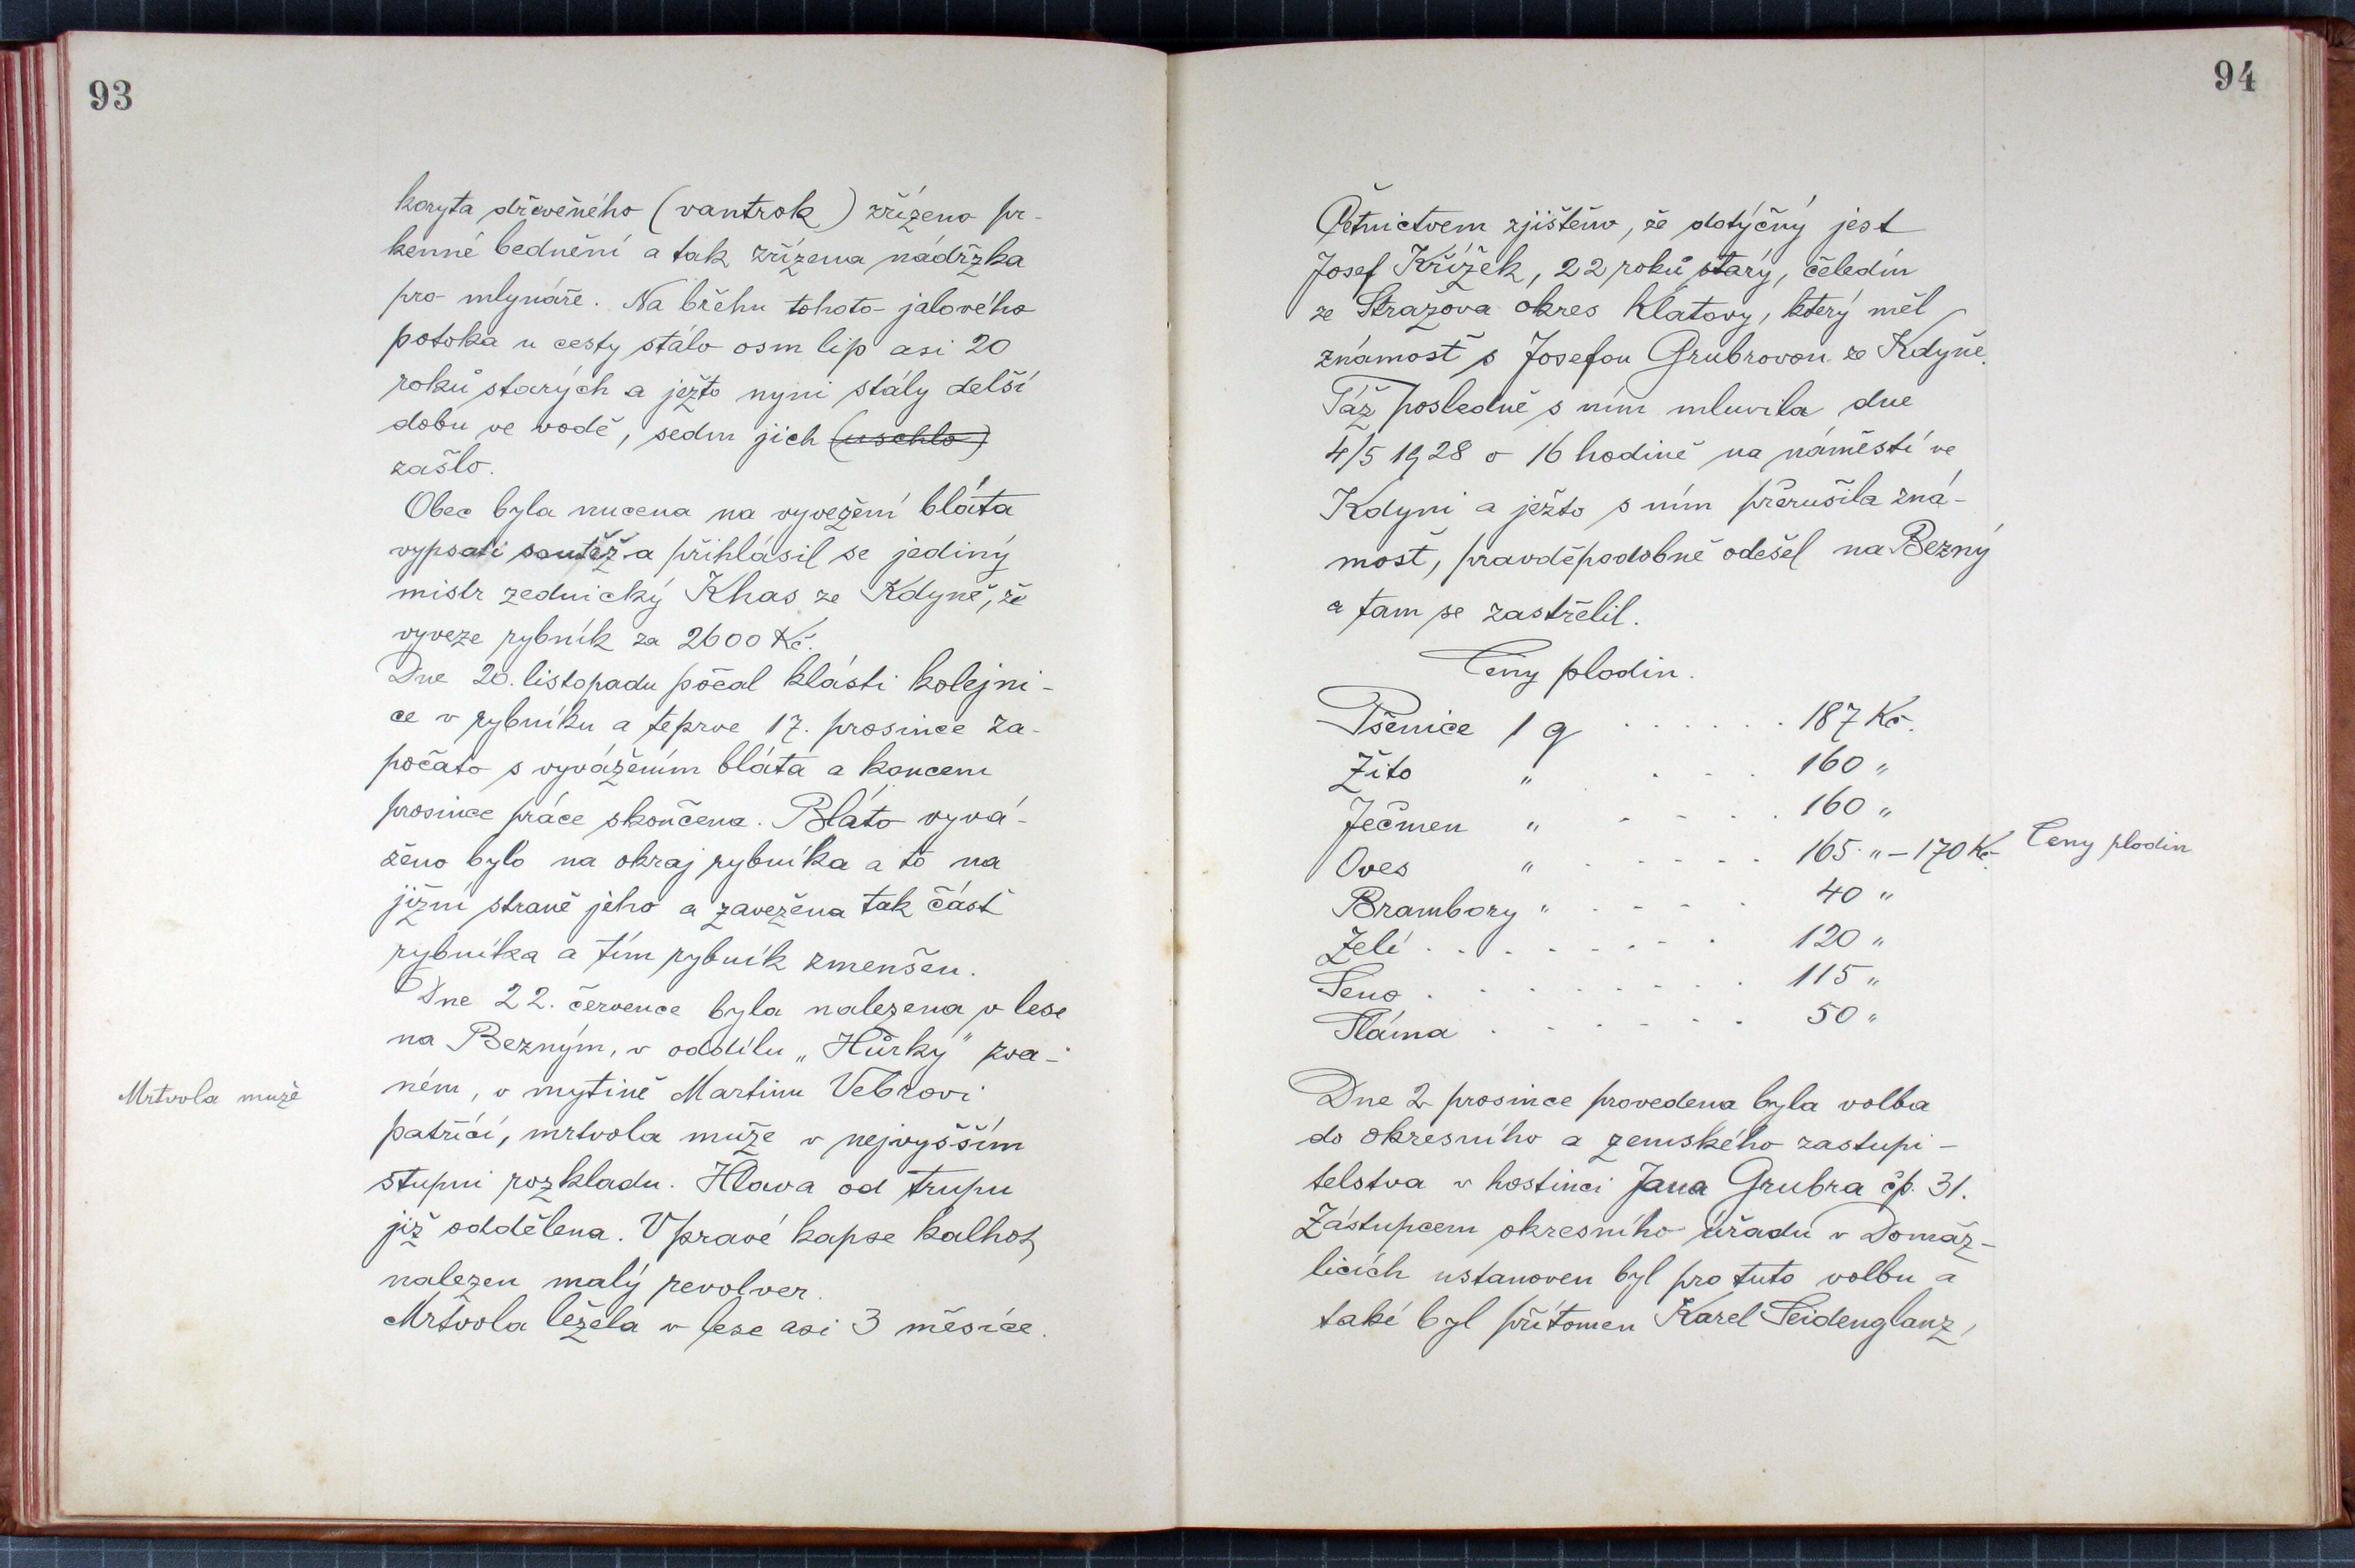 93
koryta dřevěného (vantrok) zřízeno pr-
kenné bednění a tak zřízena nádržka
pro mlynáře. Na břehu tohoto jalového
potoka u cesty stálo osm lip asi 20
roků starých a ježto nyni stály delší
dobu ve vodě, sedm jich (uschlo)
zašlo.
Obec byla nucena na vyvežení bláta
vypsati soutěž a přihlásil se jediný
mistr zednický Khas ze Kdyně, že
vyveze rybník za 2600 Kč.
Dne 20. listopadu počal klásti kolejni-
ce v rybníku a teprve 17. prosince za-
počato s vyvážením bláta a koncem
prosince práce skončena. Bláto vyvá-
ženo bylo na okraj rybníka a to na
jižní straně jeho a zavežena tak část
rybníka a tím rybník zmenšen.
Dne 22. července byla nalezena v lese
na Bezným, v oddílu „Hůrky" zva-
ném, v mytině Martinu Vebrovi
Mrtvola muže
patřící, mrtvola muže v nejvyšším
stupni rozkladu. Hlava od trupu
již oddělena. V pravé kapse kalhot
nalezen malý revolver.
Mrtvola ležela v lese asi 3 měsíce.
94
Četnictvem zjištěno, že dotýčný jest
Josef Křížek, 22 roků starý, čeledín
ze Stražova okres Klatovy, který měl
známosť s Josefou Grubrovou ze Kdyně.
Táž posledně s ním mluvila dne
4/5 1928 o 16 hodině na náměstí ve
Kdyni a ježto s ním přerušila zná-
mosť, pravděpodobně odešel na Bezný
a tam se zastřelil.
Ceny plodin.
Pšenice 1 q . . . . . . 187 Kč.
Žito " . . . 160 "
Ječmen " . . . . . 160 "
Oves " . . . . . 165 " – 170 Kč
Ceny plodin
Brambory " . . . . 40 "
Zelí . . . . . . . . 120 "
Seno . . . . . . . . . 115 "
Sláma . . . . . . 50 "
Dne 2 prosince provedena byla volba
do okresního a zemského zastupi-
telstva v hostinci Jana Grubra čp. 31.
Zástupcem okresního úřadu v Domaž-
licích ustanoven byl pro tuto volbu a
také byl přítomen Karel Seidenglanz,